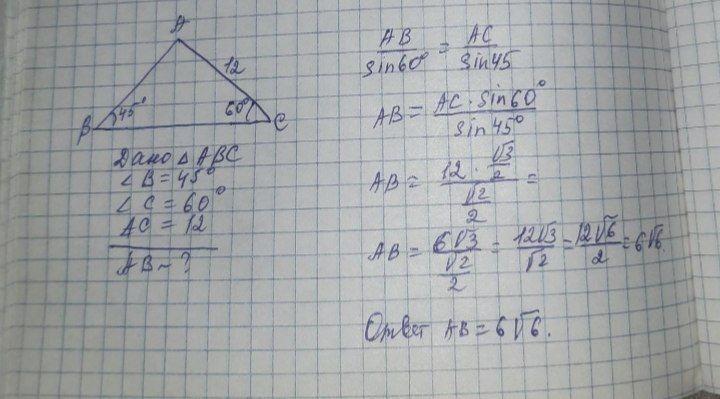 A
12
45°
60°
B
C
Дано △ABC
∠B = 45°
∠C = 60°
AC = 12
AB - ?
AB/sin60° = AC/sin45
AB = AC · sin60°/sin45°
AB = (12 · √3/2)/(√2/2) =
AB = 6√3/(√2/2) = 12√3/√2 = 12√6/2 = 6√6.
Ответ AB = 6√6.